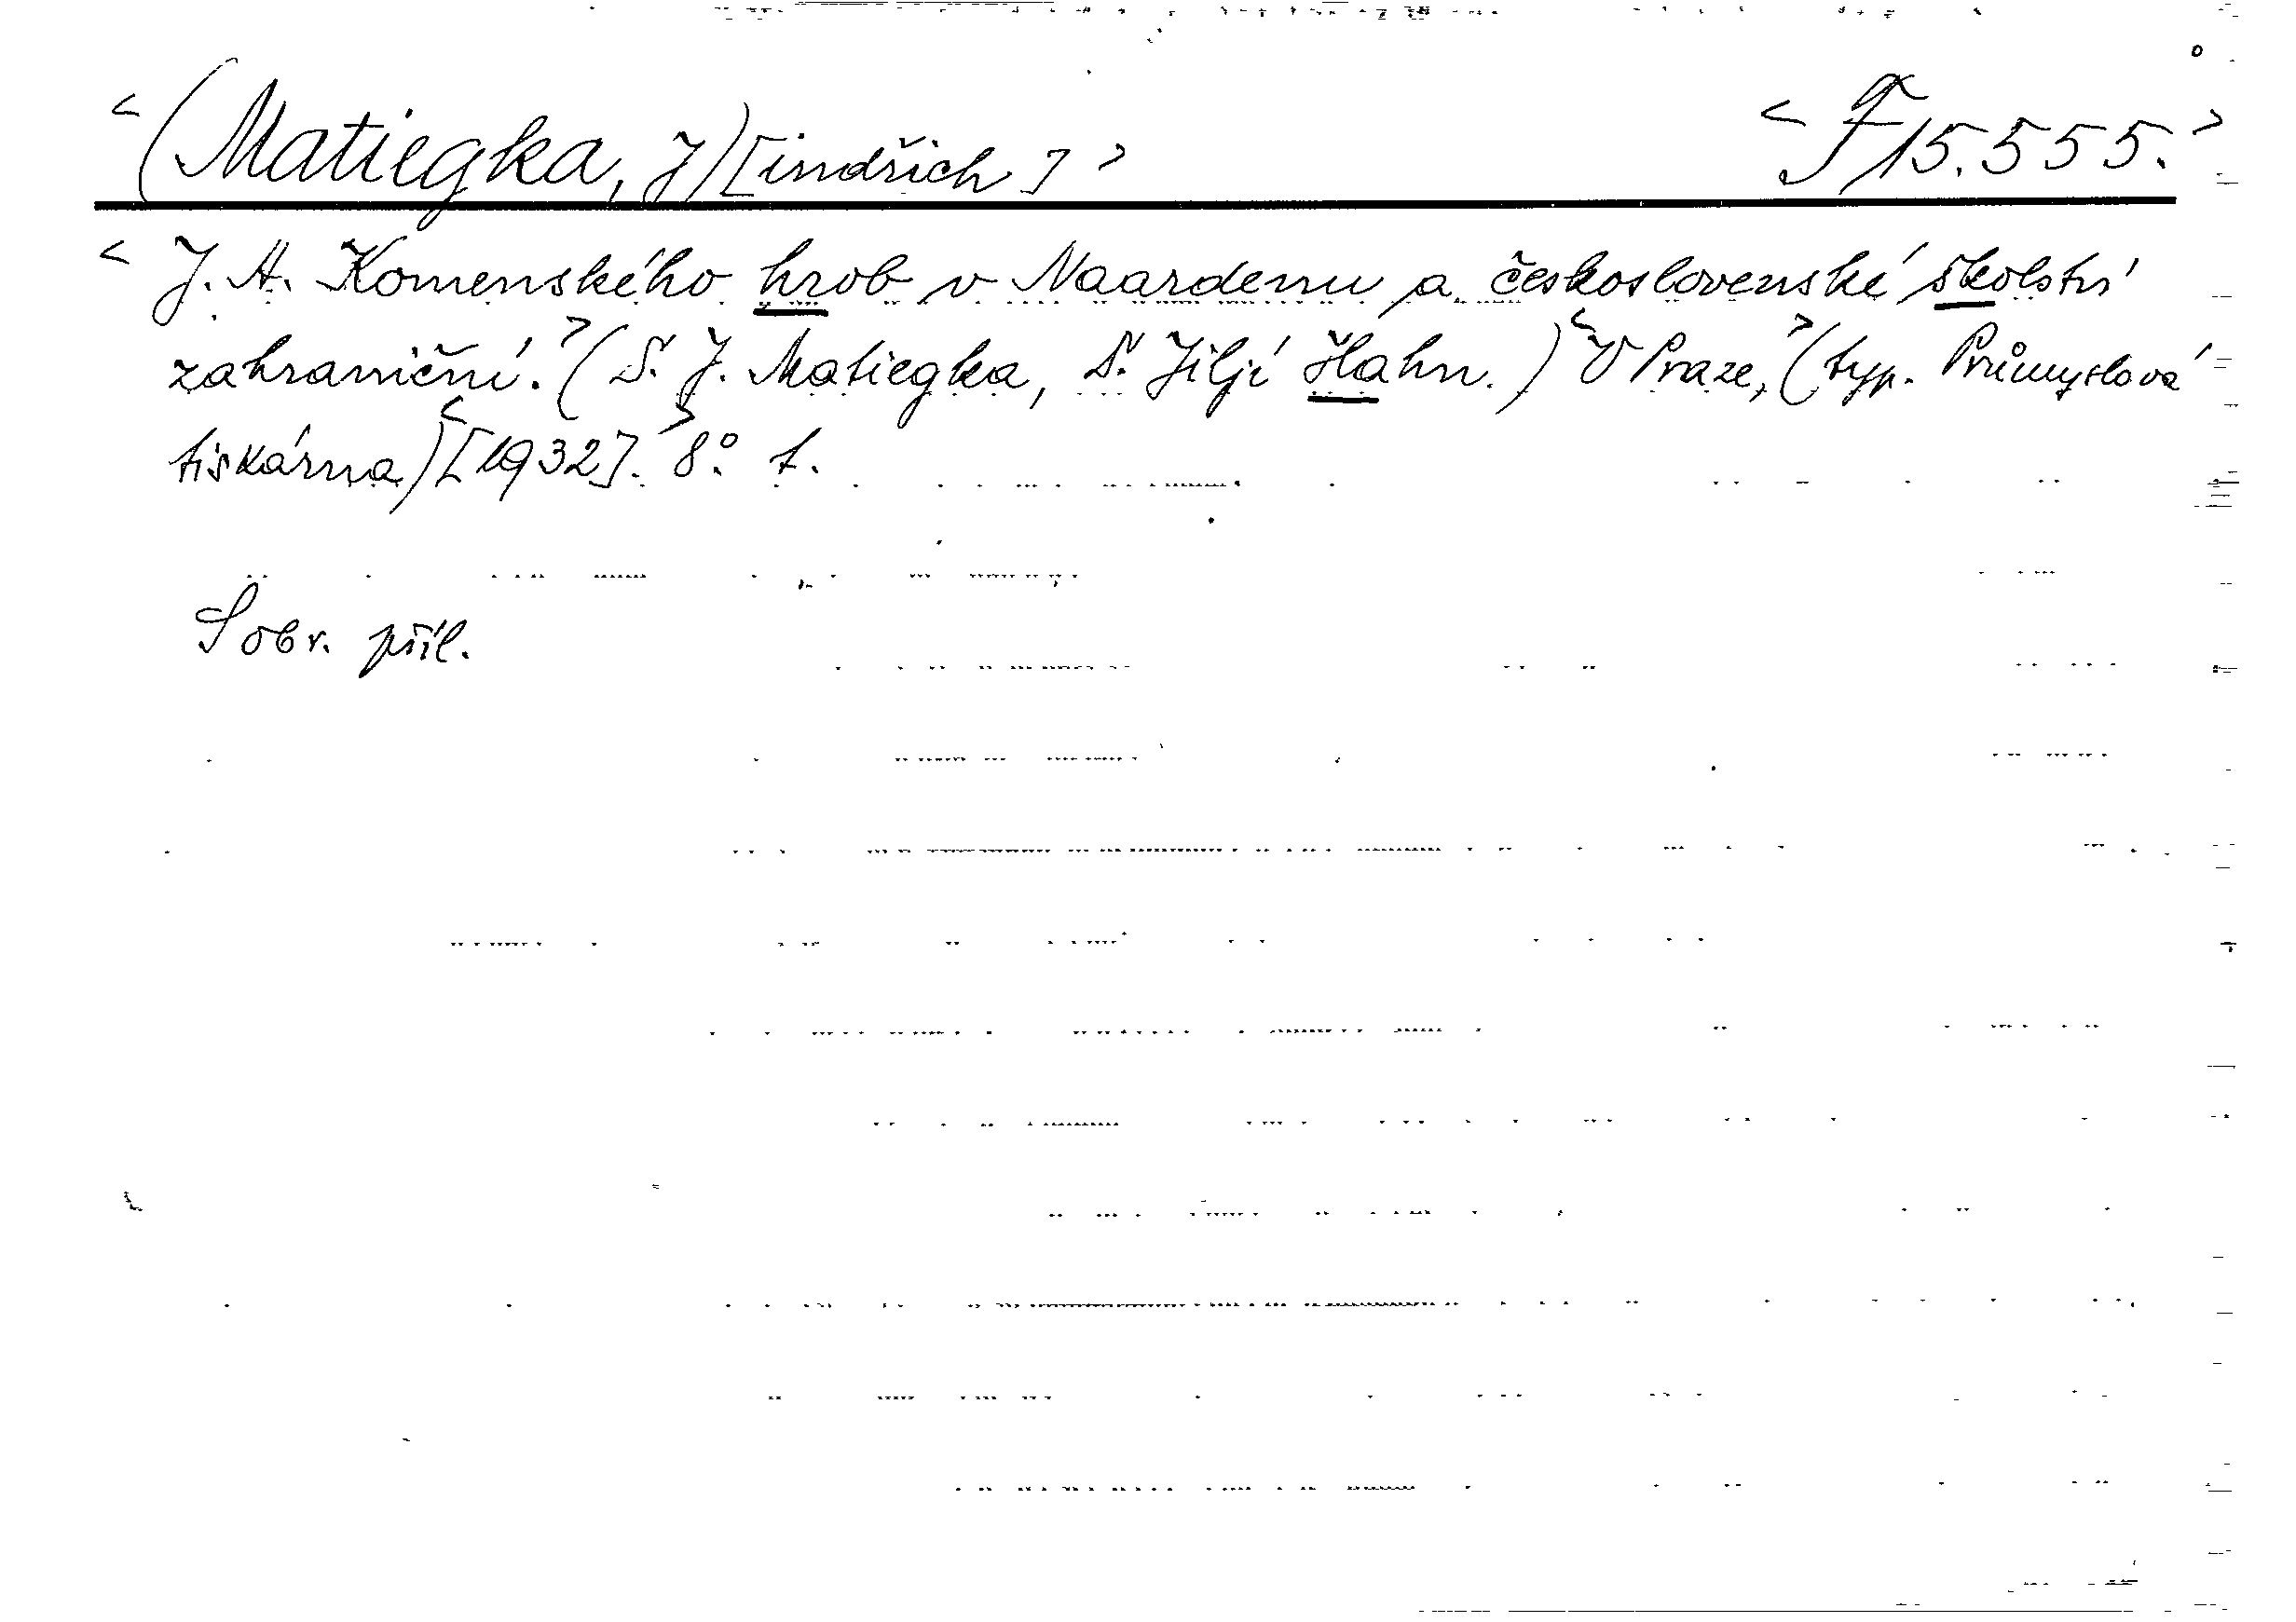 <(Matiegka, J)[indřich]> <F 15.555.>
<J. A. Komenského hrob v Naardenu a československé školství
zahraniční.>(S. J. Matiegka, S. Jiljí Hahn.)<V Praze,>(typ. Průmyslová
tiskárna)<[1932].> 8°. t.
S obr. příl.